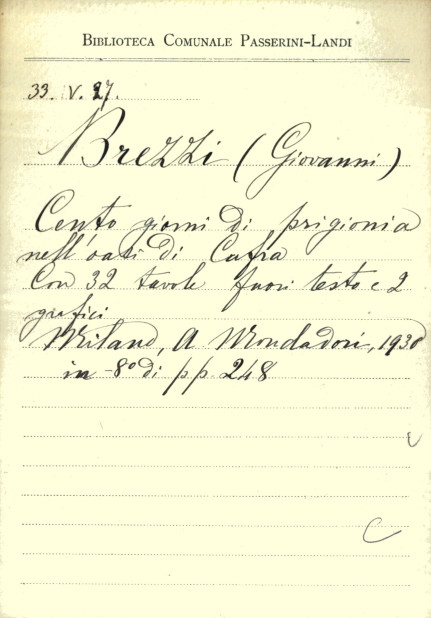 BIBLIOTECA COMUNALE PASSERINI-LANDI
33. V. 27.
Brezzi (Giovanni)
Cento giorni di prigionia
nell'oasi di Cufra
Con 32 tavole fuori testo e 2
grafici
Milano, A Mondadori, 1930
in -8° di pp. 248
C